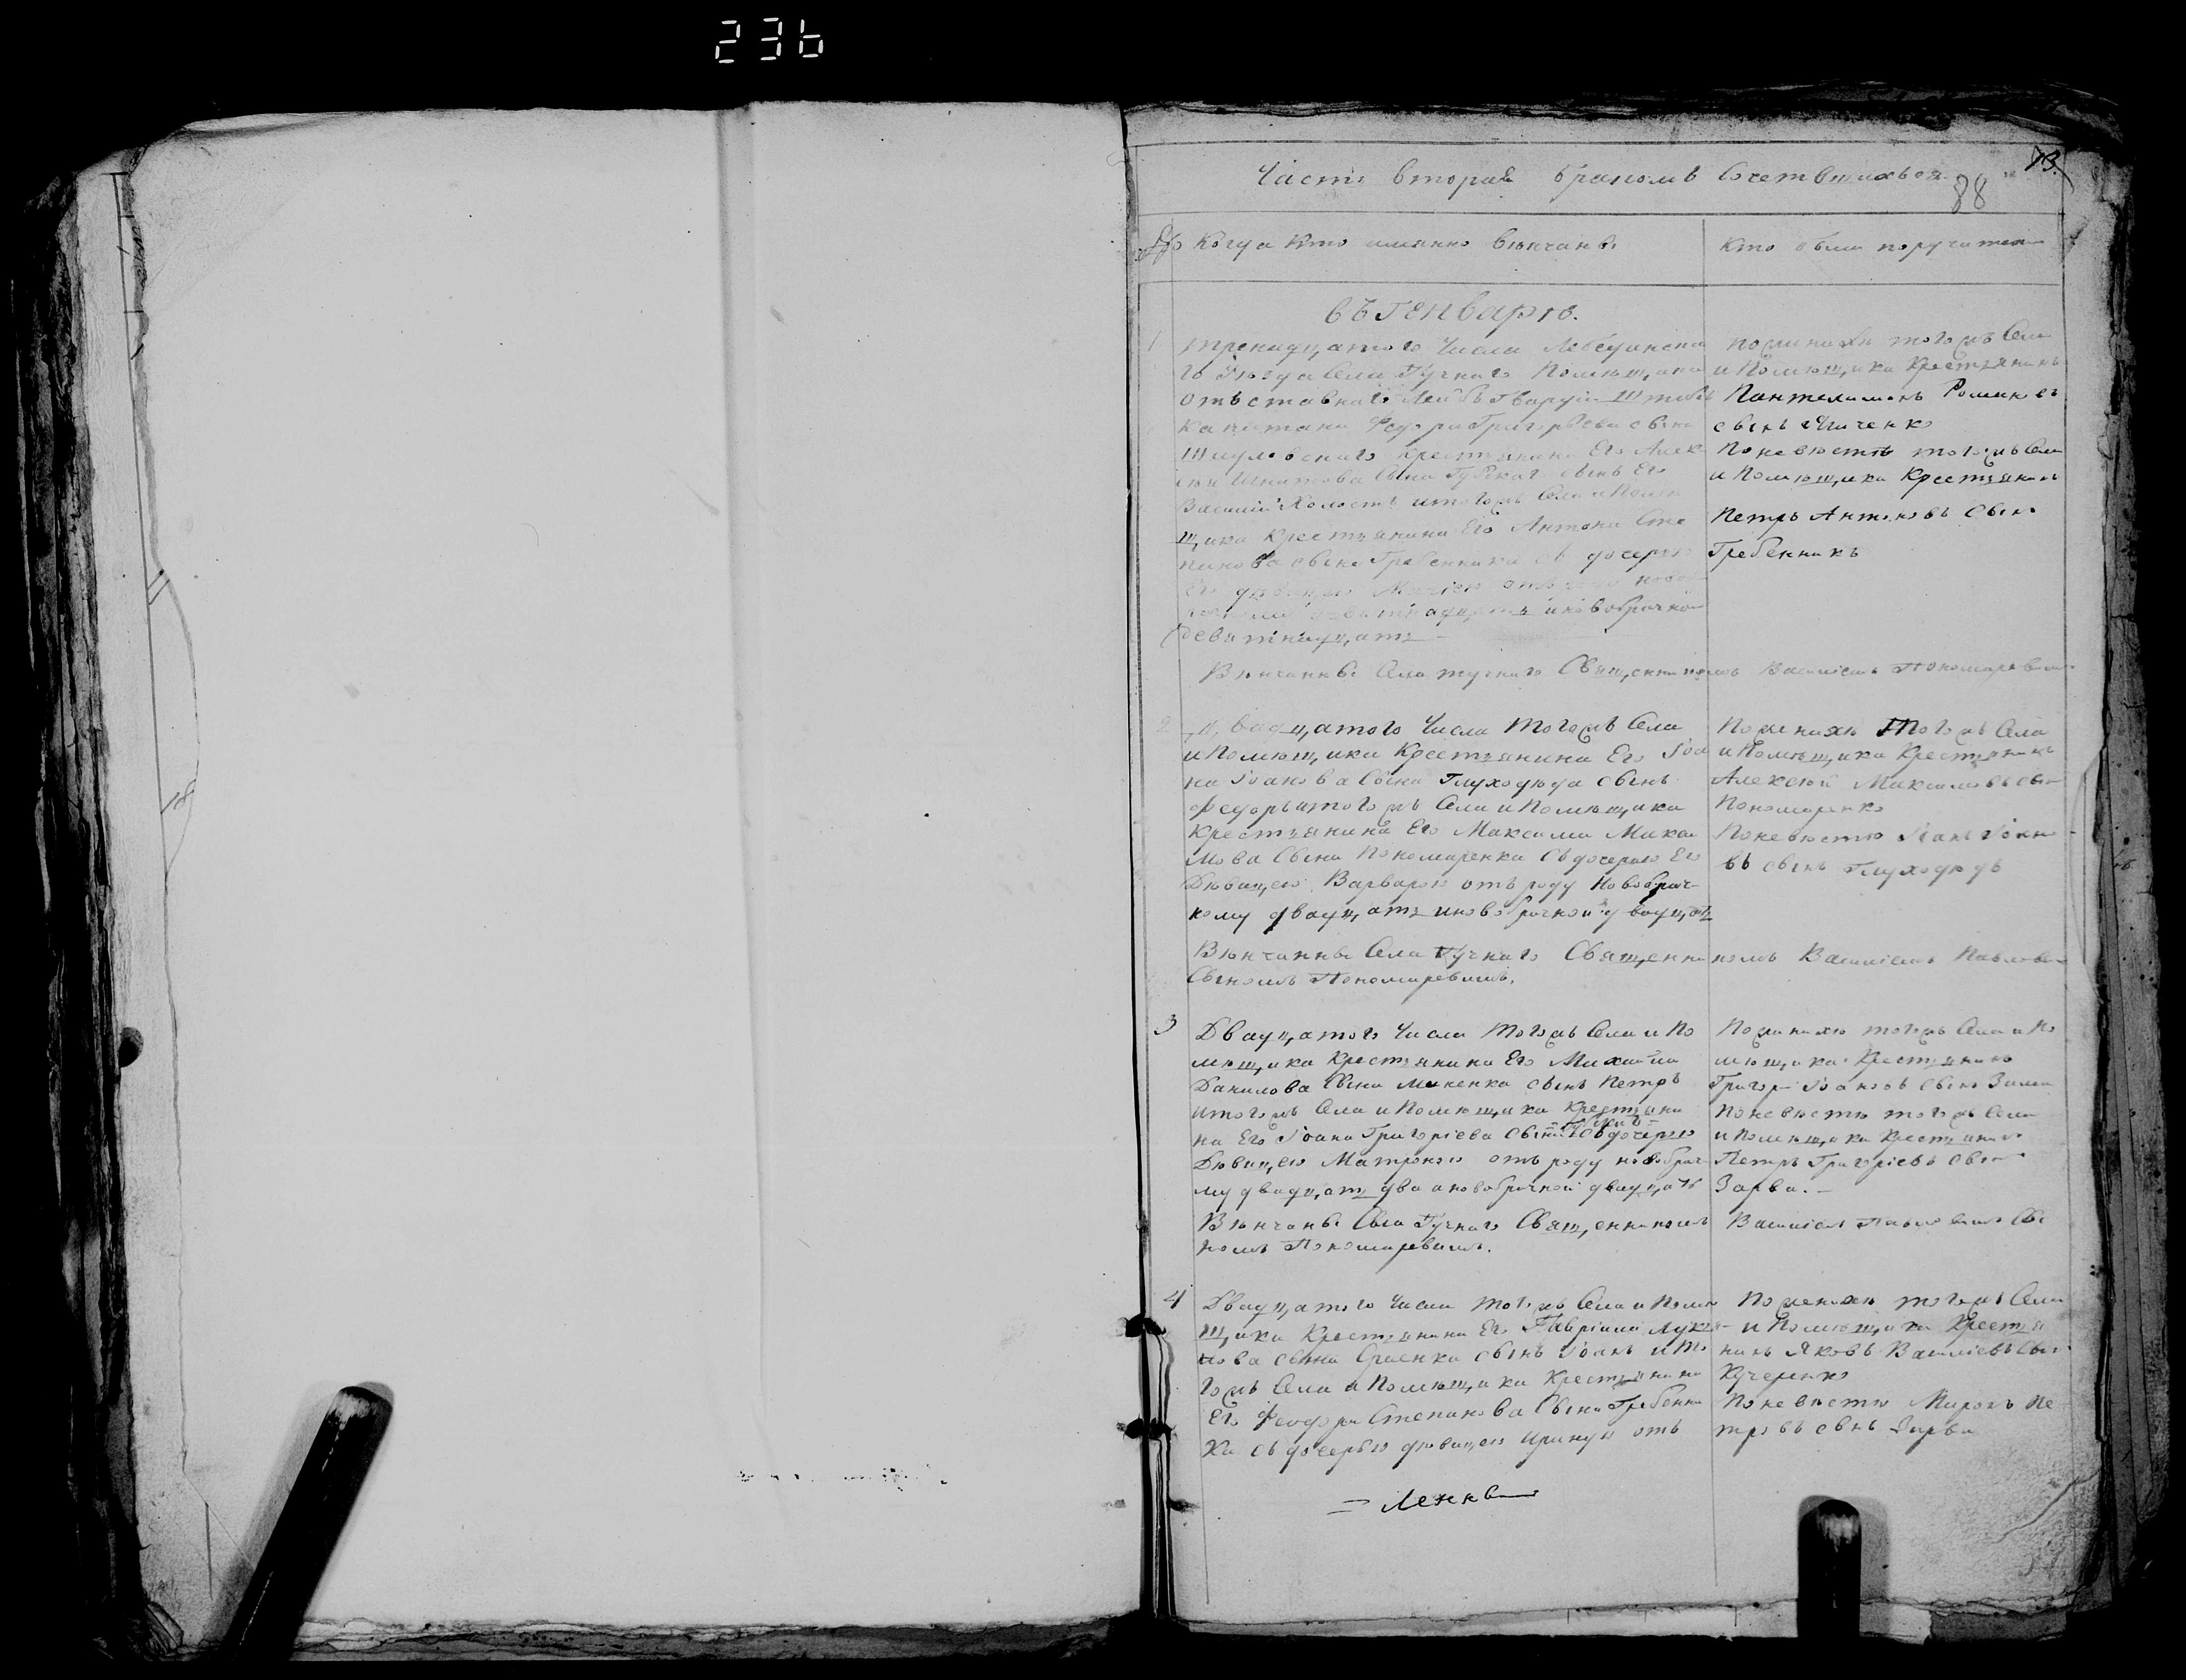 236
73.
Часть вторая бракомъ Сочетвшихъся
88
№ Когда кто имянно вѣнчаны
Кто были поручители
въ генварѣ.
1 тренадцатого Числа Лебединска
го уезда Села Тучного Помѣщика
отъставнаго Лейбъ гвардіи Штабъ
капитана Федора Григорьева сына
крестьянина Его Алек
сѣя сына сынъ Его
Василій Холостъ итогожъ Села и Помѣ
щика Крестьянина Его Антона Сте
панова сына Гребенника съ дочерью
Его девицею отъ
иновобрачной
девятнадцать
поженихѣ тогожъ Села
и Помѣщика Крестьянинъ
Пантелимонъ Романовъ
сынъ
Поневѣстѣ тогожъ Села
и Помѣщика Крестьянинъ
Петръ Антоновъ Сынъ
Гребенникъ
Вѣнчанны Села тучнаго Священникомъ Василіемъ Пономаревымъ
2 Двадцатого Числа Тогожъ Села
и Помѣщика Крестьянина Его Іоа
на Іоанова Сына Глуходѣда сынъ
Федоръ итогожъ Села и Помѣщика
Крестьянина Его Максима Макси
мова Сына Пономаренка Съдочерью Его
Дѣвицею Варварою отъ роду Новобрач
ному двадцать иновобрачной двадцать
Поженихѣ Тогожъ Села
и Помѣщика Крестьянинъ
Алексѣй Максимовъ сынъ
Пономаренко
Поневѣстѣ Іоанъ Іоано
въ сынъ Глуходѣдъ
Вѣнчанны Села Тучнаго Священникомъ Василіемъ Павловымъ
Сыномъ Пономаревымъ.
3 Двадцатого Числа Тогожъ Села и По
мѣщика Крестьянина Его Михаила
Данилова Сына сынъ Петръ
итогожъ Села и Помѣщика Крестьяни
на Его Іоана Григоріева сына Съдочерью
Дѣвицею Матроною отъ роду новобрач
му двадцать два ановобрачной двадцать
Поженихѣ тогожъ Села и По
мѣщика Крестьянинъ
Григорій Іоановъ Сынъ Зима
Поневѣстѣ тогожъ Села
и Помѣщика Крестьянинъ
Петръ Григоріевъ Сынъ
Зарва.
Вѣнчаны Села Тучнаго Священникомъ Василіемъ Павловымъ Сы
номъ Пономаревымъ.
4 Двадцатого Числа Тогожъ Села и Помѣ
щика Крестьянина Его Гавріила Луки
нова сына сынъ Іоанъ и то
гожъ Села и Помѣщика Крестьянина
Его Феодора Степанова Сына Гребенни
ка съ дочерью дѣвицею отъ
Поженихѣ тогожъ Села
и Помѣщика Крестья
нинъ Яковъ Василіевъ Сынъ
Кучеренко
Поневѣстѣ Миронъ Пе
тровъ сынъ Зарва